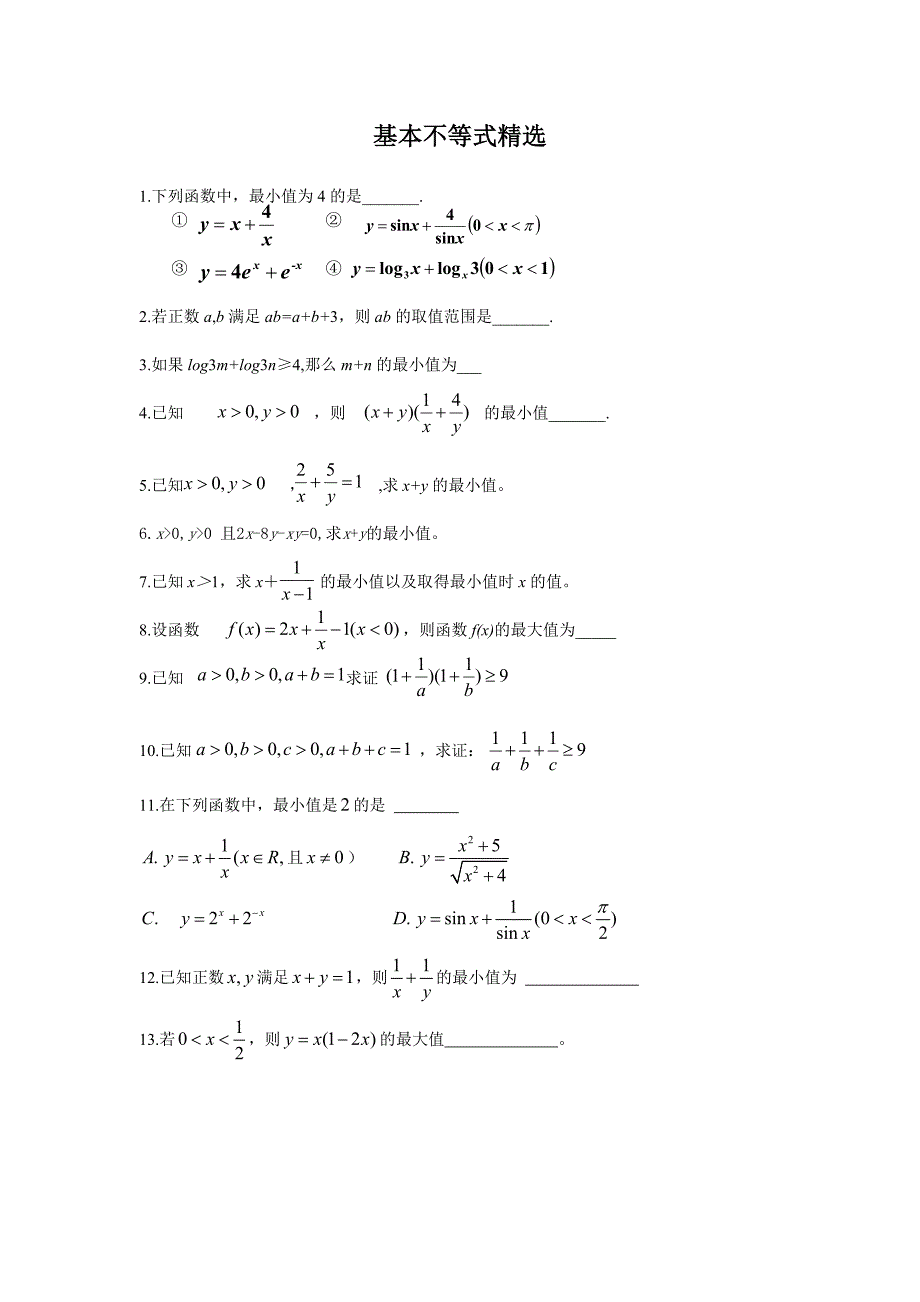 基本不等式精选
1.下列函数中，最小值为 4 的是_______.
① y = x + 4/x ② y = sinx + 4/sinx (0 < x < π)
③ y = 4e^x + e^-x ④ y = log₃x + logₓ3(0 < x < 1)
2.若正数 a,b 满足 ab=a+b+3，则 ab 的取值范围是_______.
3.如果 log3m+log3n≥4,那么 m+n 的最小值为___
4.已知 x > 0, y > 0 ，则 (x + y)(1/x + 4/y) 的最小值_______.
5.已知x > 0, y > 0 ,2/x + 5/y = 1 ,求 x+y 的最小值。
6. x>0, y>0 且2x-8y-xy=0,求x+y的最小值。
7.已知 x＞1，求 x＋1/(x−1) 的最小值以及取得最小值时 x 的值。
8.设函数 f(x) = 2x + 1/x − 1(x < 0)，则函数 f(x)的最大值为_____
9.已知 a > 0, b > 0, a + b = 1求证 (1 + 1/a)(1 + 1/b) ≥ 9
10.已知 a > 0, b > 0, c > 0, a + b + c = 1 ，求证： 1/a + 1/b + 1/c ≥ 9
11.在下列函数中，最小值是 2 的是 ________
A. y = x + 1/x (x ∈ R, 且 x ≠ 0 ） B. y = (x² + 5)/√(x² + 4)
C. y = 2^x + 2^−x D. y = sin x + 1/sin x (0 < x < π/2)
12.已知正数 x, y 满足 x + y = 1，则 1/x + 1/y 的最小值为 ______________
13.若 0 < x < 1/2，则 y = x(1 − 2x) 的最大值______________。